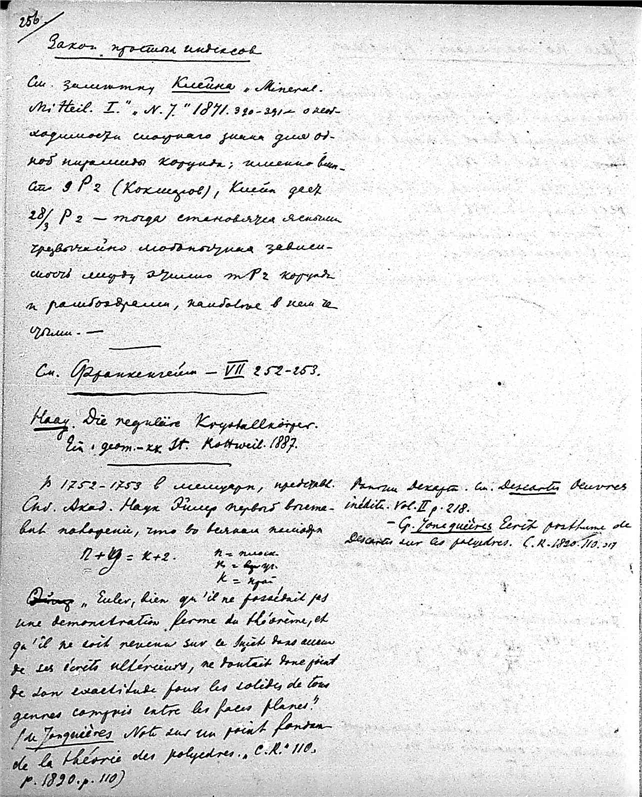 256.
Закон простых индексов
См. заметку Клейна „Mineral.
Mitteil. I." „N. J." 1871. 390-391 — о необ-
ходимости сложного знака для од-
ной пирамиды корунда; именно вме-
сто 9 P 2 (Кокшаров), Клейн дает
28/3 P 2 — тогда становятся ясными
чрезвычайно зависи-
мость между этими mP2 корунда
и ромбоэдрами, наиболее в нем ча-
стыми. —
См. Франкенгейм — VII 252-253.
Haag. Die reguläre Krystallkörper.
Ein geom.-kr. St. Rottweil. 1887.
В 1752-1753 в мемуарах, представл.
Спб. Акад. Наук Эйлер первый
положение, что во всяком полиэдре
n + y = k + 2.
n = плоск.
k = край
„Euler, bien qu'il ne possédait pas
une demonstration ferme du théorème, et
qu'il ne soit revenu sur ce sujet dans aucun
de ses écrits ultérieurs, ne doutait donc point
de son exactitude pour les solides de tous
genres compris entre les faces planes."
(Jonquières Note sur un point fondam.
de la théorie des polyedres. „C.R." 110.
p. 1890. p. 110)
Декарт. См. Descartes Oeuvres
inédits. Vol. II p. 218.
— Jonquières Ecrit posthume de
Descartes sur les polyedres. C.R. 1890. 110.